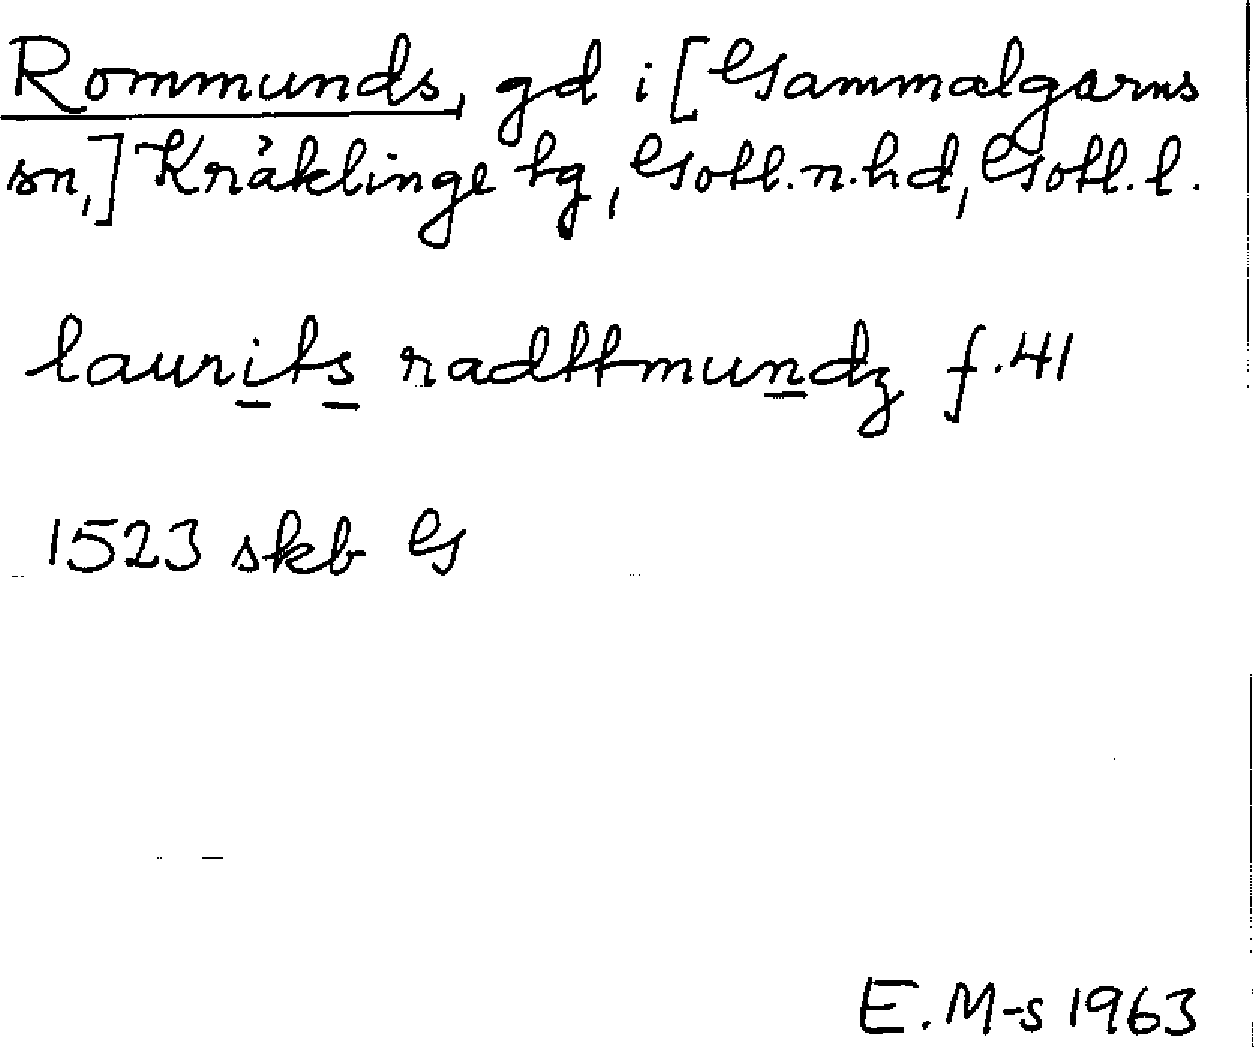 Rommunds, gd i [Gammalgarns
sn,] Kräklinge tg, Gotl. n. hd, Gotl. l.
laurits radttmundz f. 41
1523 skb G
E. M-s 1963